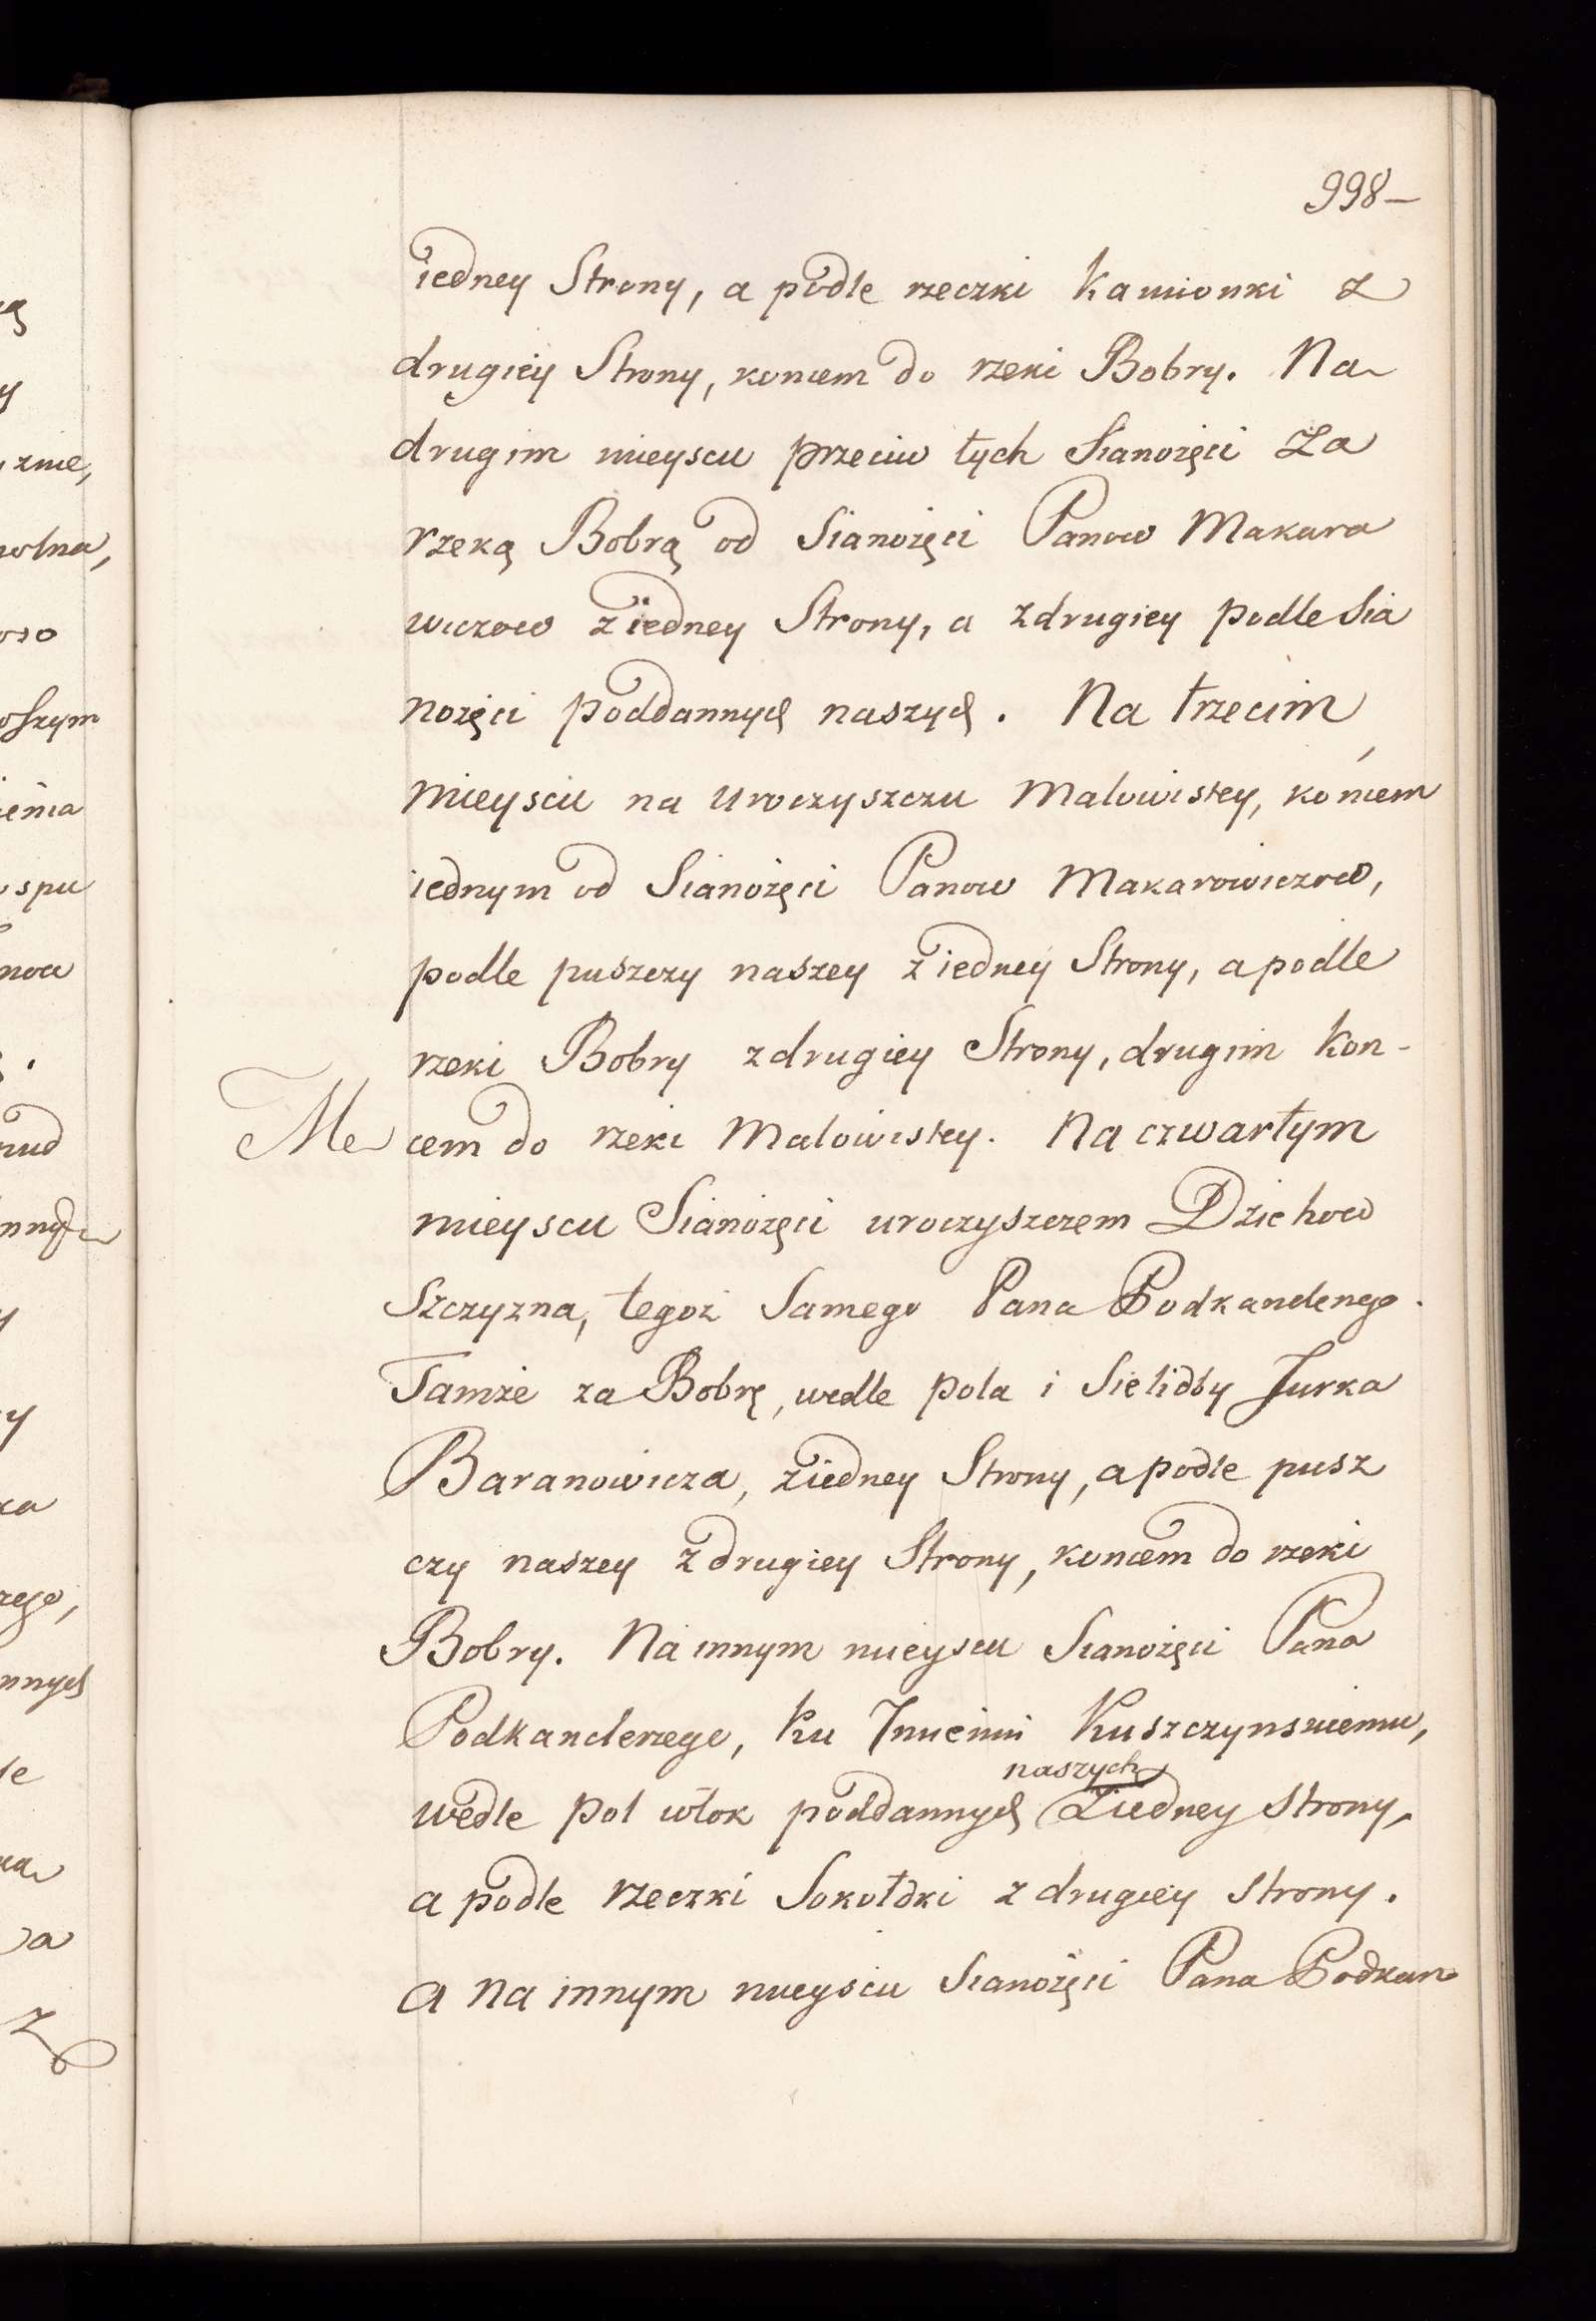 998–
iedney Strony, a podle rzeczki Kamionki z
drugiey Strony, koncem do rzeki Bobry. Na
drugim mieyscu przeciw tych Sianożęci Za
rzeką Bobrą od Sianożęci Panow Makaro
wiczow z iedney Strony, a z drugiey podle Sia
nożęci poddannych naszych. Na trzecim
mieyscu na Uroczyszczu Malowistey, końcem
iednym od Sianożęci Panow Makarowiczow,
podle puszczy naszey z iedney Strony, a podle
rzeki Bobry z drugiey Strony, drugim kon-
cem do rzeki Malowistey. Na czwartym
mieyscu Sianożęci uroczyszczem Dziehow
Szczyzna, tegoż Samego Pana Podkandenego.
Tamże za Bobrę, wedle pola i Sielidby Jurka
Baranowicza, z iedney Strony, a podle pusz
czy naszey z drugiey Strony, koncem do rzeki
Bobry. Na innym mieyscu Sianożęci Pana
Podkanclerzego, ku Kuszczynskiemu,
naszych
wedle pol włok poddannych Ziedney strony,
a podle rzeczki Sokołdki z drugiey strony.
a na innym mieyscu Sianożęci Pana Podkan